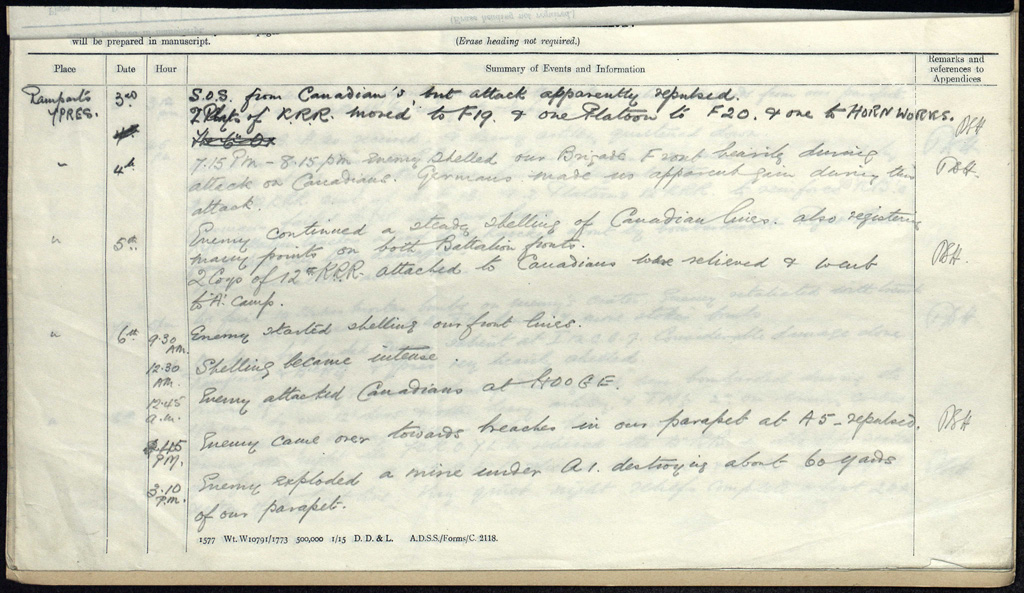 (Erase heading not required.)
will be prepared in manuscript. (Erase heading not required.)
Place Date Hour Summary of Events and Information Remarks and references to Appendices
Ramparts 3rd S.O.S. from Canadian's but attack apparently repulsed.
YPRES. 2 of K.R.R. moved to F19. & one Platoon to F20. & one to HORN WORKS.
PBH
" 4th 7.15 PM - 8.15 pm Enemy shelled our Brigade Front heavily during PBH.
attack on Canadians. Germans made no apparent gain during this
attack.
" 5th Enemy continued a steady shelling of Canadian lines. also registering
many points on both Battalion fronts. PBH.
2 Coys of 12th K.R.R. attached to Canadians were relieved & went
to 'A' camp.
" 6th 9.30 AM. Enemy started shelling our front lines.
12.30 AM. Shelling became intense.
12.45 a.m. Enemy attacked Canadians at HOOGE.
PM. Enemy came over towards breaches in our parapet at A5 - repulsed. PBH
3.10 P.m. Enemy exploded a mine under A1. destroying about 60 yards
of our parapet.
1577 Wt. W10791/1773 500,000 1/15 D. D. & L. A.D.S.S./Forms/C. 2118.